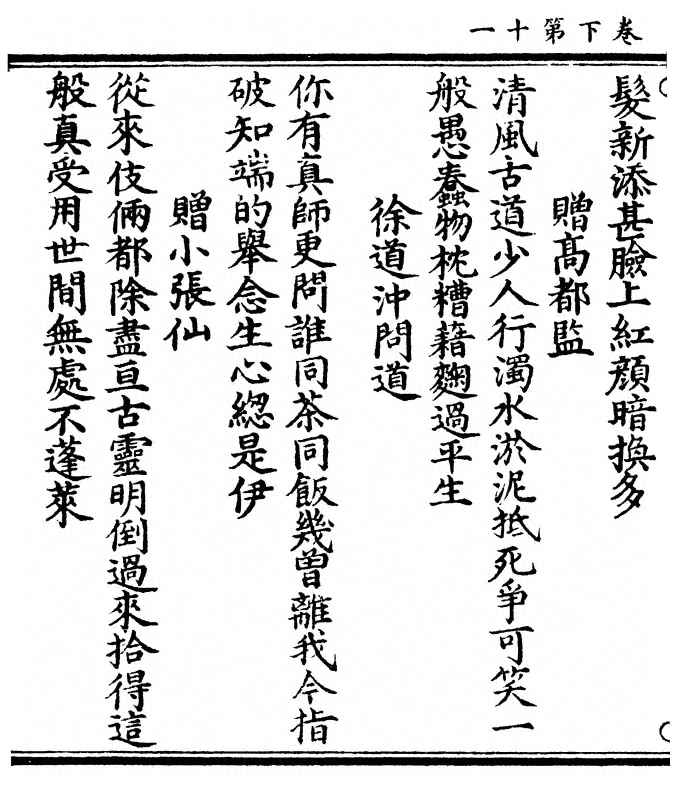 卷下第十一
髮新添甚臉上紅顔暗換多
贈髙都監
清風古道少人行濁水淤泥抵死爭可笑一
般愚蠢物枕糟藉麴過平生
徐道沖問道
你有真師更問誰同茶同飯幾曾離我今指
破知端的舉念生心緫是伊
贈小張仙
從來伎倆都除盡亘古靈明倒過來拾得這
般真受用世間無處不蓬萊